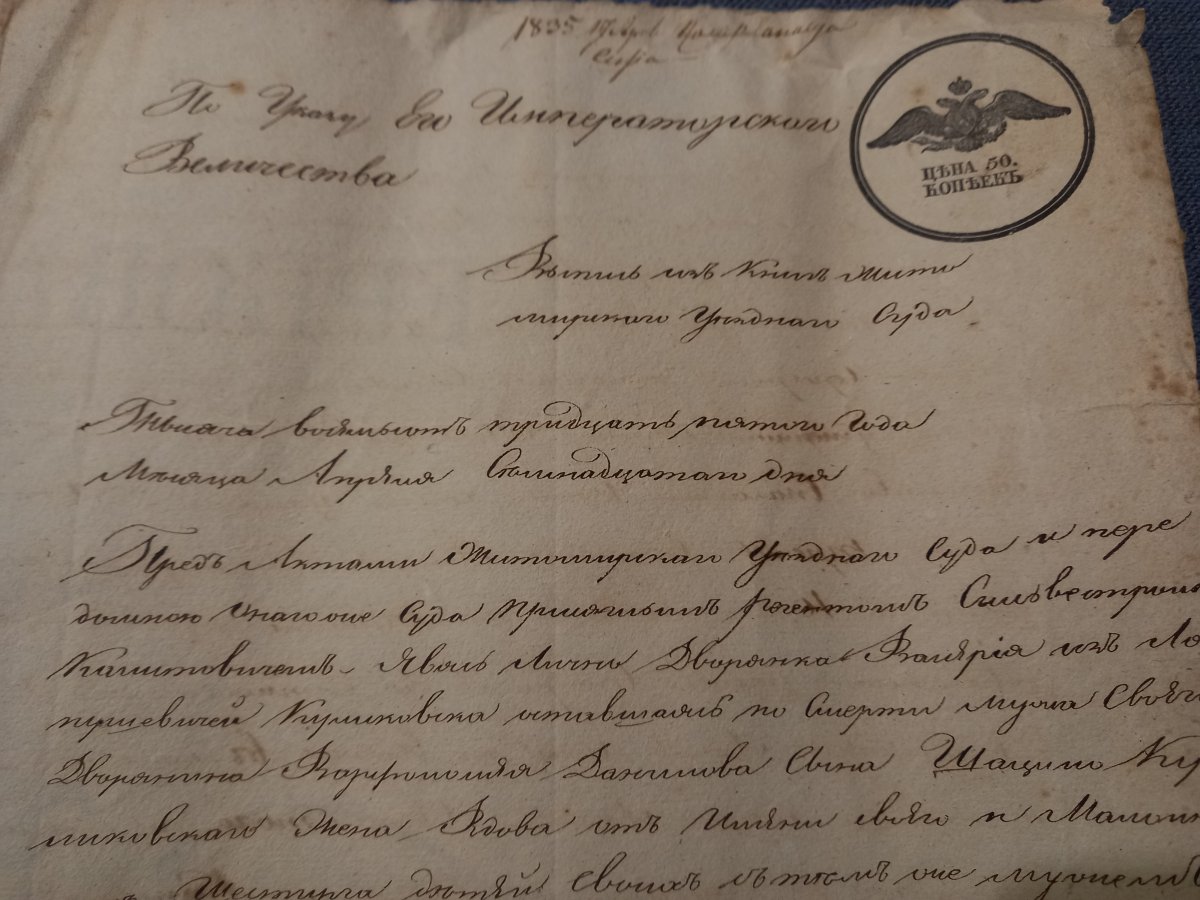 1835
По Указу Его Императорского
Величества
ЦѢНА 50.
КОПѢЕКЪ
Выпись изъ книгъ Жито
мирского Уѣзднаго Суда
Тысяча восемьсотъ тридцать пятого Года
Мѣсяца Апрѣля Семнадцатаго дня
Предъ Актами Житомирскаго Уѣзднаго Суда и пере
домною тогоже Суда присяжнымъ Регентомъ Сильвестромъ
явясь Лично Дворянка Валерія изъ
Куликовска оставшаясь по Смерти мужа Своего
Дворянина Варфоломея Данилова Сына Шацило Ку
ликовскаго Жена Вдова отъ Имяни своего и
Шестерга дѣтей своихъ съ тѣмъ же мужемъ